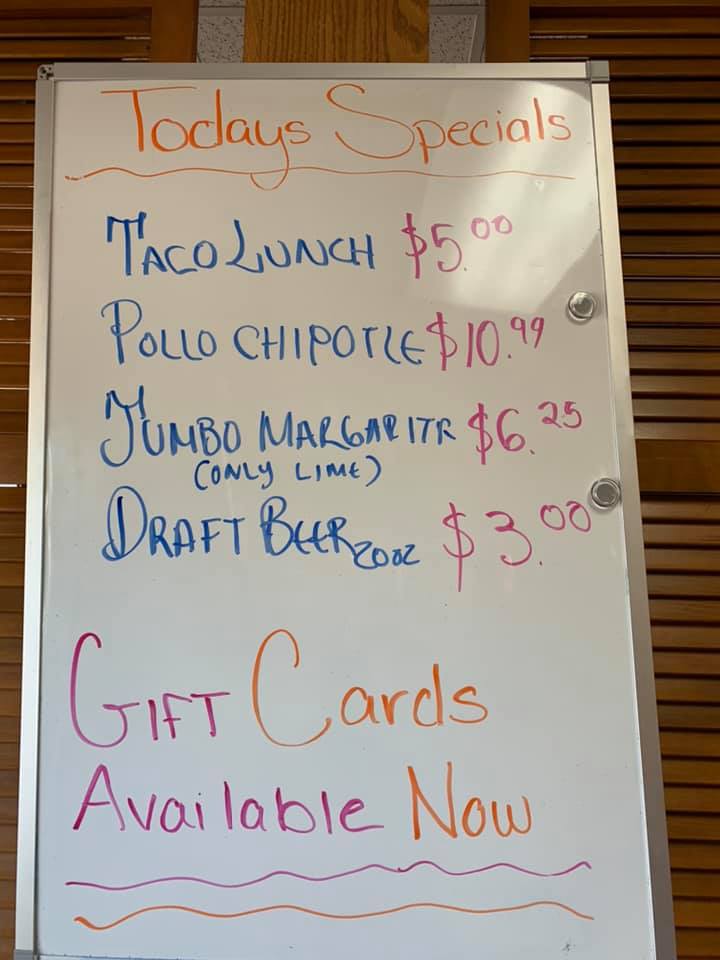 Todays Specials
TACO LUNCH $5.00
POLLO CHIPOTLE $10.99
JUMBO MARGARITR $6.25
(ONLY LIME)
DRAFT BEER 20oz $3.00
GIFT Cards
Available Now